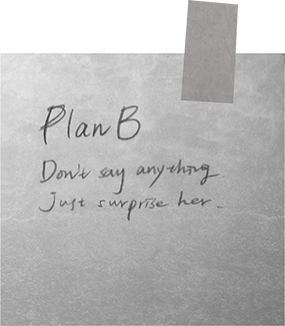 Plan B
Don't say anything.
Just surprise her.